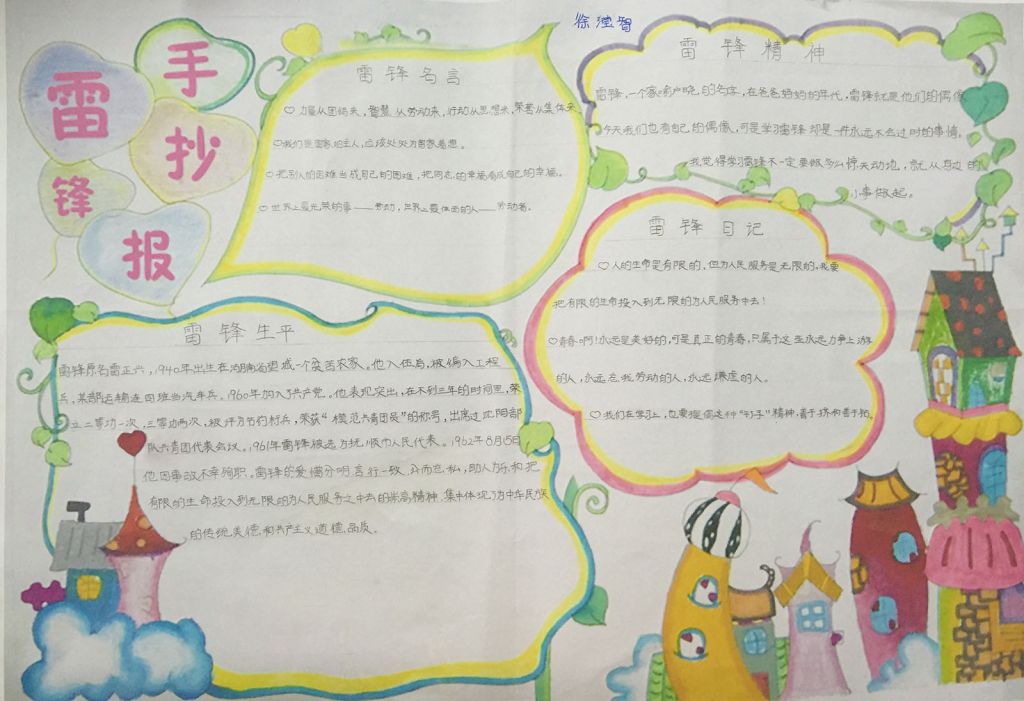 雷锋
手抄报
徐滢智
雷锋名言
♡力量从团结来，智慧从劳动来，行动从思想来，荣誉从集体来
♡我们是国家的主人，应该处处为国家着想。
♡把别人的困难当成自己的困难，把同志的幸福看成自己的幸福。
♡世界上最光荣的事——劳动，世界上最体面的人——劳动者。
雷锋精神
雷锋，一个家喻户晓的名字，在爸爸妈妈的年代，雷锋就是他们的偶像
今天我们也有自己的偶像，可是学习雷锋却是一件永远不会过时的事情。
我觉得学习雷锋不一定要做多么惊天动地，就从身边的
小事做起。
雷锋日记
♡人的生命是有限的，但为人民服务是无限的，我要
把有限的生命投入到无限的为人民服务中去！
♡青春啊！永远是美好的，可是真正的青春，只属于这些永远力争上游
的人，永远忘我劳动的人，永远谦虚的人。
♡我们在学习上，也要提倡这种“钉子”精神，善于挤和善于钻。
雷锋生平
雷锋原名雷正兴，1940年出生在湖南省望城一个贫苦农家。他入伍后，被编入工程
兵，某部运输连四班当汽车兵。1960年加入了共产党。他表现突出，在不到三年的时间里，荣
立二等功一次，三等功两次，被评为节约标兵，荣获“模范共青团员”的称号，出席过沈阳部
队共青团代表会议。1961年雷锋被选为抚顺市人民代表。1962年8月15日
他因事故不幸殉职。雷锋的爱憎分明言行一致、公而忘私，助人为乐和把
有限的生命投入到无限的为人民服务之中去的崇高精神，集中体现了中华民族
的传统美德和共产主义道德品质。